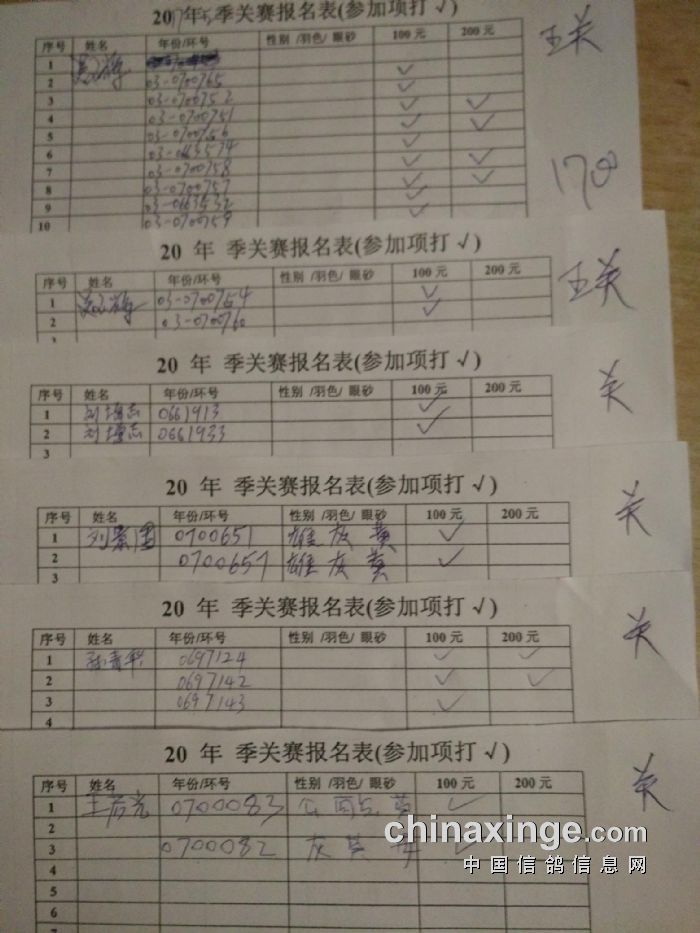 2017年 季关赛报名表(参加项打 √)
序号 姓名 年份/环号 性别 /羽色/ 眼砂 100 元 200 元
王关
1
2 03-0700765 √
3 03-0700752 √ √
4 03-0700751 √ √
5 03-0700756 √
6 03-0663574 √ √
7 03-0700758 √ √
8 03-0700757 √
9 03-0663532 √
10 03-0700759
170
20 年 季关赛报名表(参加项打 √)
序号 姓名 年份/环号 性别 /羽色/ 眼砂 100 元 200 元
王关
1 03-0700754 √
2 03-0700760 √
20 年 季关赛报名表(参加项打 √)
序号 姓名 年份/环号 性别 /羽色/ 眼砂 100 元 200 元
关
1 刘增志 0661913 √
2 刘增志 0661933 √
3
20 年 季关赛报名表(参加项打 √)
序号 姓名 年份/环号 性别 /羽色/ 眼砂 100 元 200 元
关
1 刘景国 0700651 雄灰黄 √
2 0700657 雄灰黄 √
3
20 年 季关赛报名表(参加项打 √)
序号 姓名 年份/环号 性别 /羽色/ 眼砂 100 元 200 元
关
1 0697124 √ √
2 0697142 √ √
3 0697143 √
4
20 年 季关赛报名表(参加项打 √)
序号 姓名 年份/环号 性别 /羽色/ 眼砂 100 元 200 元
关
1 0700083 √
2
3 0700082 灰 √
4
5
6
7
chinaxinge.com
中国信鸽信息网